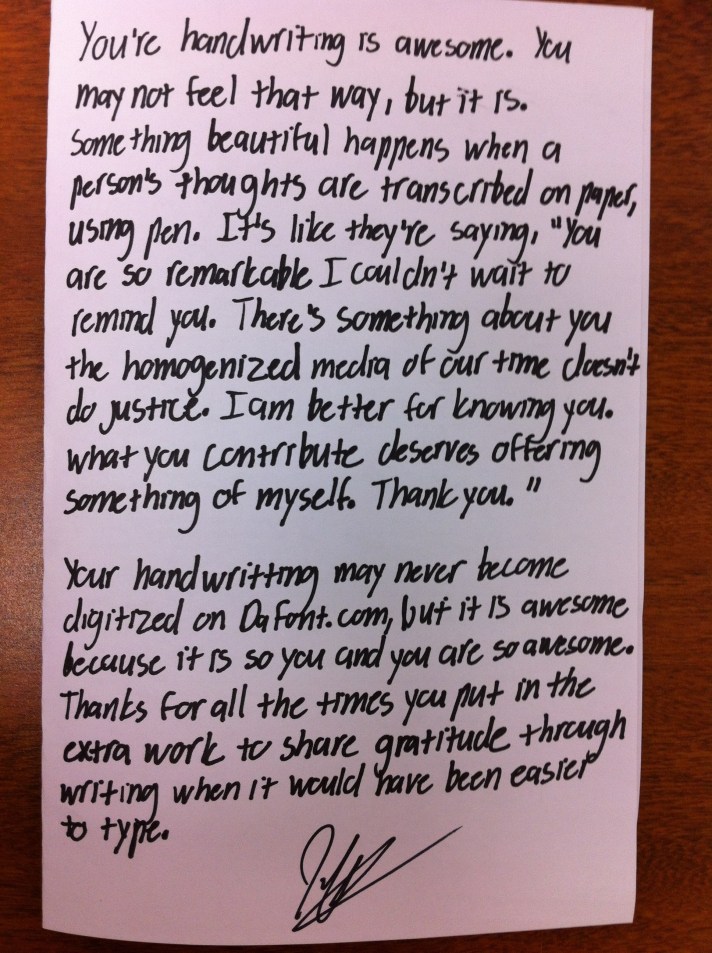 You're handwriting is awesome. You
may not feel that way, but it is.
Something beautiful happens when a
person's thoughts are transcribed on paper,
using pen. It's like they're saying, "You
are so remarkable I couldn't wait to
remind you. There's something about you
the homogenized media of our time doesn't
do justice. I am better for knowing you.
What you contribute deserves offering
something of myself. Thank you."
Your handwritting may never become
digitized on DaFont.com, but it is awesome
because it is so you and you are so awesome.
Thanks for all the times you put in the
extra work to share gratitude through
writing when it would have been easier
to type.